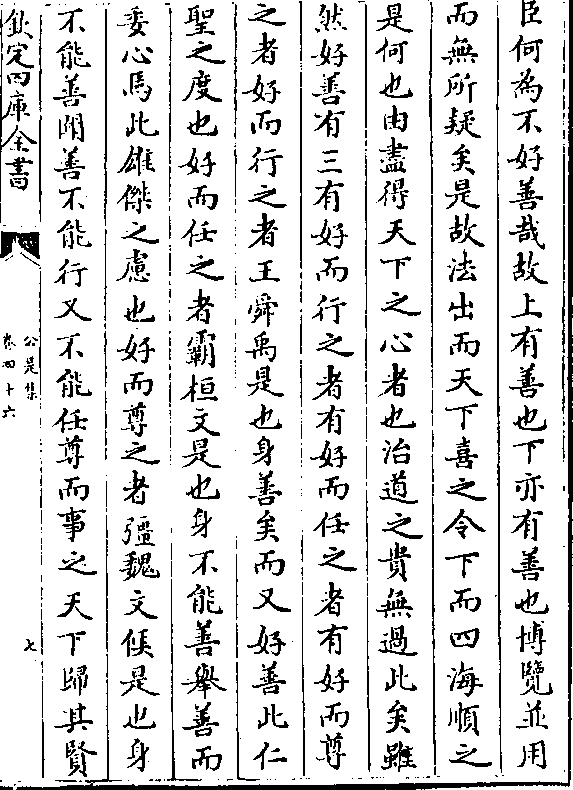 臣何為不好善哉故上有善也下亦有善也博覽並用
而無所疑矣是故法出而天下喜之令下而四海順之
是何也由盡得天下之心者也治道之貴無過此矣雖
然好善有三有好而行之者有好而任之者有好而尊
之者好而行之者王舜禹是也身善矣而又好善此仁
聖之度也好而任之者霸桓文是也身不能善舉善而
委心焉此雄傑之慮也好而尊之者彊魏文侯是也身
不能善聞善不能行又不能任尊而事之天下歸其賢
欽定四庫全書
公是集
卷四十六
七